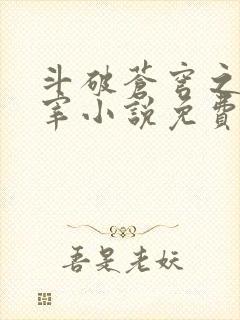 斗破蒼穹之
宰小說免費
吾是老妖